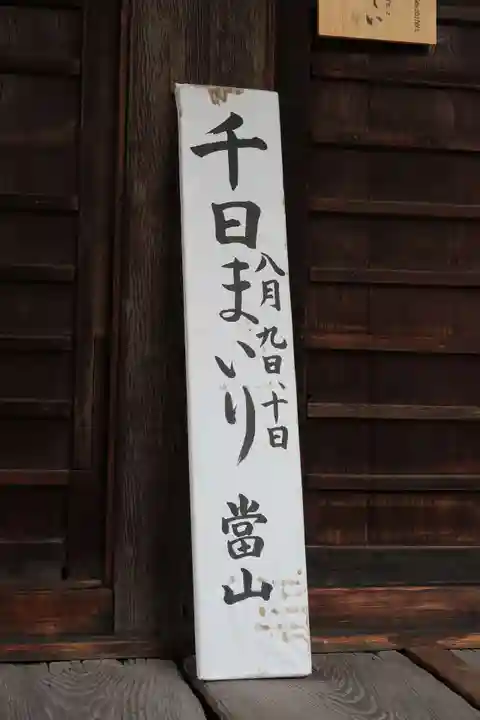 千日まいり
八月九日、十日
當山